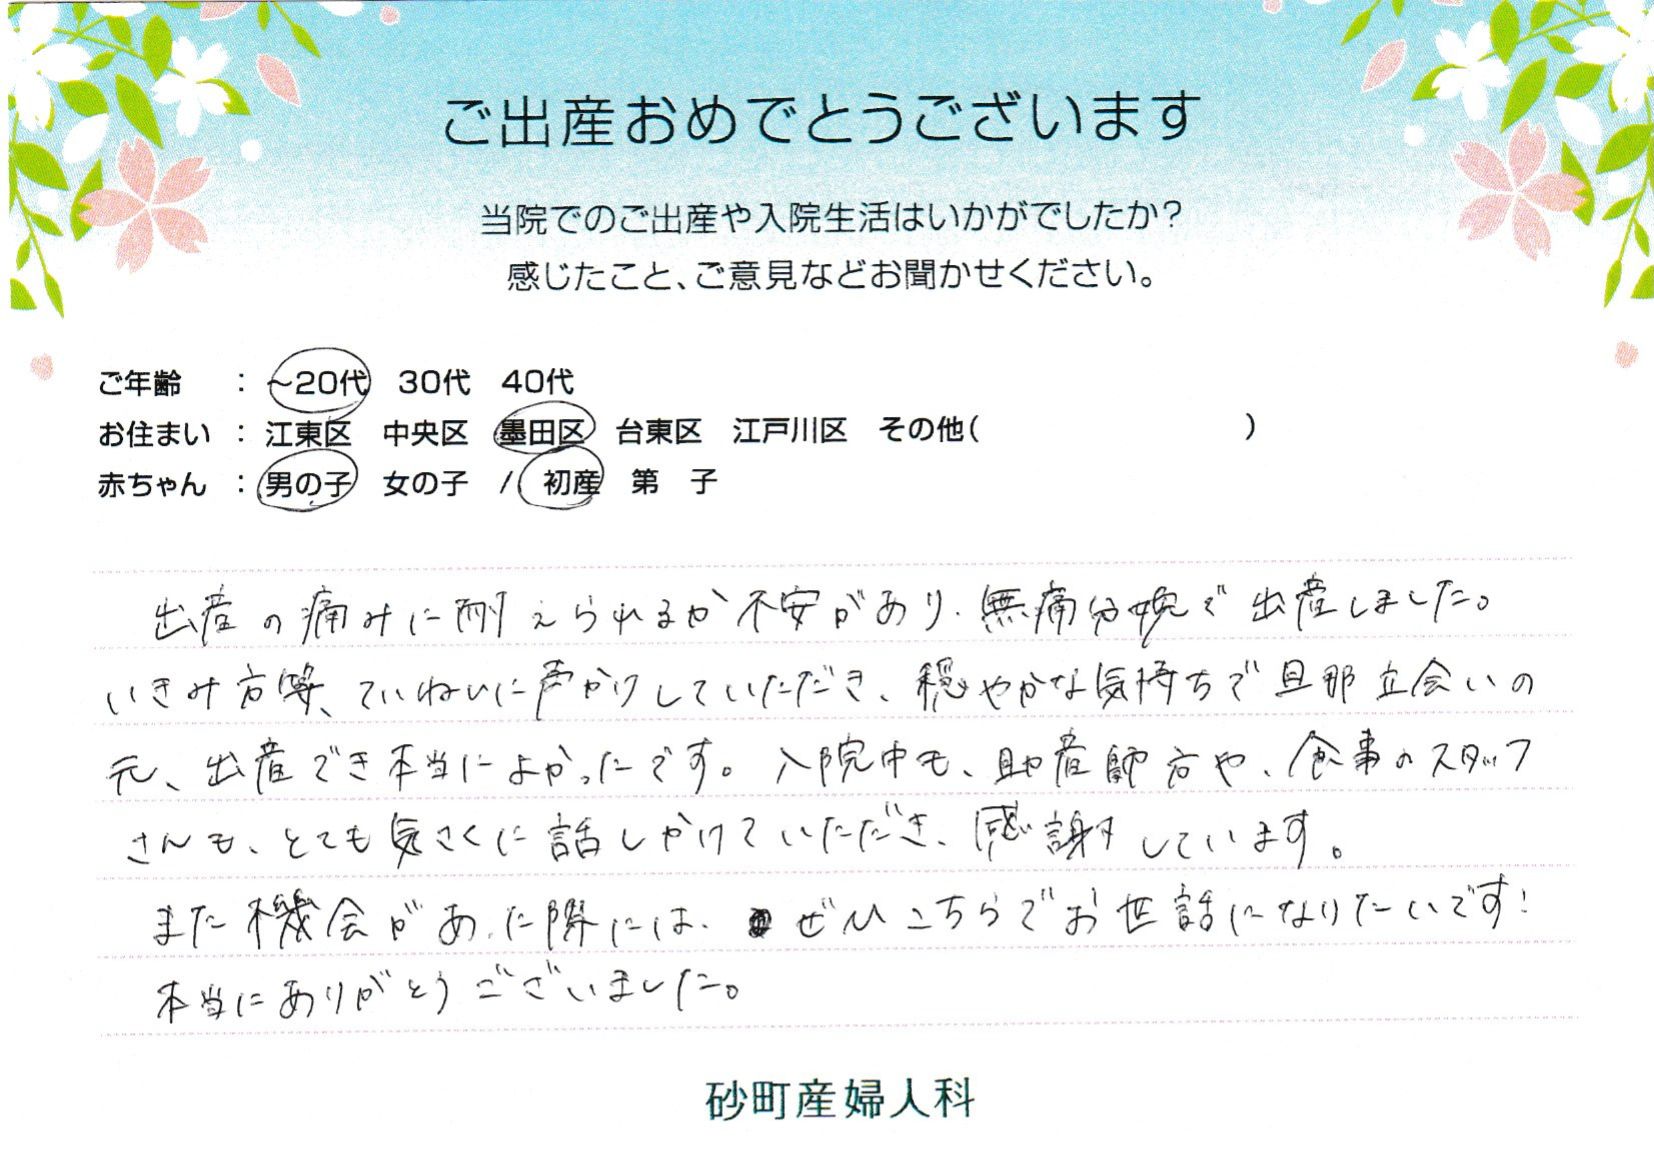 ご出産おめでとうございます
当院でのご出産や入院生活はいかがでしたか?
感じたこと、ご意見などお聞かせください。
ご年齢 : ~20代 30代 40代
お住まい : 江東区 中央区 墨田区 台東区 江戸川区 その他( )
赤ちゃん : 男の子 女の子 / 初産 第 子
出産の痛みに耐えられるか不安があり、無痛分娩で出産しました。
いきみ方等、ていねいに声かけしていただき、穏やかな気持ちで旦那立会いの
元、出産でき本当によかったです。入院中も、助産師方や、食事のスタッフ
さんも、とても気さくに話しかけていただき、感謝しています。
また機会があった際には、ぜひこちらでお世話になりたいです!
本当にありがとうございました。
砂町産婦人科